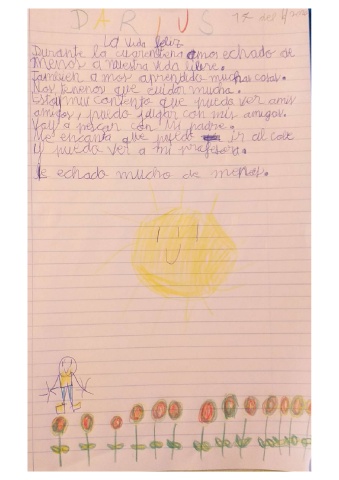 DARIUS
La vida feliz
Durante la cuarentena amor echado de
menos a nuestra vida libre.
Tambien amos aprendido muchas cosas.
Nos tenemos que cuidar mucha.
Estoy mu contento que pueda ver amis
amigos, puedo jugar con mis amigos.
Voy a pescar con mi padre.
Me encanta que puedo ir al cole
y pueda ver a mi profesora.
e echado mucho de menos.